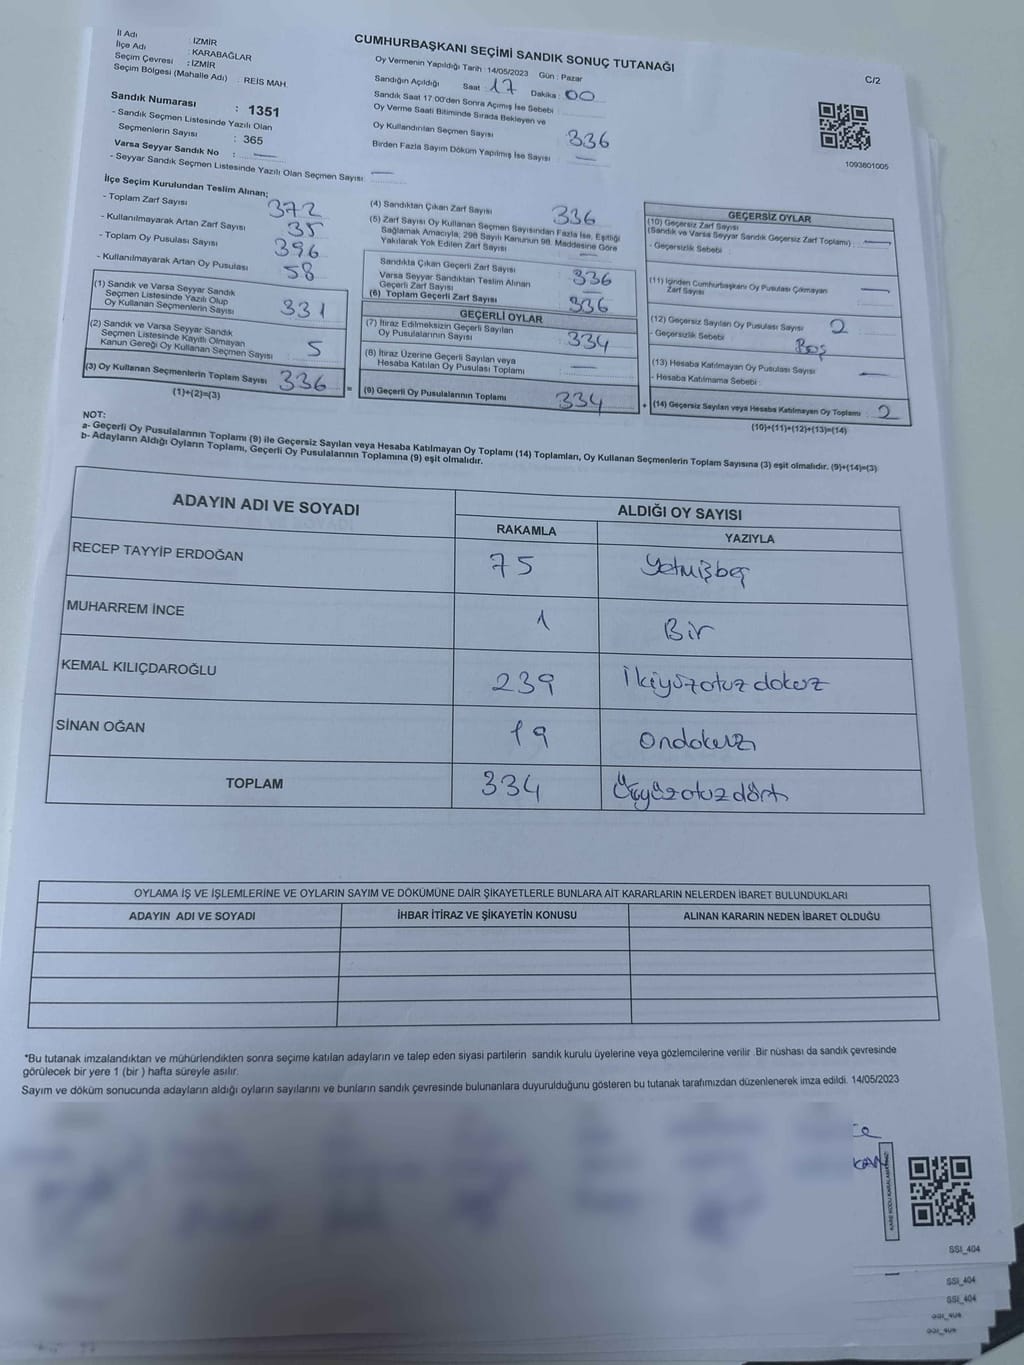 CUMHURBAŞKANI SEÇİMİ SANDIK SONUÇ TUTANAĞI
C/2
İl Adı : İZMİR
İlçe Adı : KARABAĞLAR
Seçim Çevresi : İZMİR
Seçim Bölgesi (Mahalle Adı) : REİS MAH.
Sandık Numarası : 1351
- Sandık Seçmen Listesinde Yazılı Olan
Seçmenlerin Sayısı : 365
Varsa Seyyar Sandık No : —
- Seyyar Sandık Seçmen Listesinde Yazılı Olan Seçmen Sayısı : —
Oy Vermenin Yapıldığı Tarih : 14/05/2023 Gün : Pazar
Sandığın Açıldığı Saat : 17 Dakika : 00
Sandık Saat 17.00'den Sonra Açımış İse Sebebi :
Oy Verme Saati Bitiminde Sırada Bekleyen ve
Oy Kullandırılan Seçmen Sayısı : 336
Birden Fazla Sayım Döküm Yapılmış İse Sayısı : —
1093801005
İlçe Seçim Kurulundan Teslim Alınan;
- Toplam Zarf Sayısı 372
- Kullanılmayarak Artan Zarf Sayısı 35
- Toplam Oy Pusulası Sayısı 396
- Kullanılmayarak Artan Oy Pusulası 58
(1) Sandık ve Varsa Seyyar Sandık
Seçmen Listesinde Yazılı Olup
Oy Kullanan Seçmenlerin Sayısı : 331
(2) Sandık ve Varsa Seyyar Sandık
Seçmen Listesinde Kayıtlı Olmayan
Kanun Gereği Oy Kullanan Seçmen Sayısı : 5
(3) Oy Kullanan Seçmenlerin Toplam Sayısı : 336
(1)+(2)=(3)
=
(4) Sandıktan Çıkan Zarf Sayısı : 336
(5) Zarf Sayısı Oy Kullanan Seçmen Sayısından Fazla İse, Eşitliği
Sağlamak Amacıyla, 298 Sayılı Kanunun 98. Maddesine Göre
Yakılarak Yok Edilen Zarf Sayısı : —
Sandıkta Çıkan Geçerli Zarf Sayısı : 336
Varsa Seyyar Sandıktan Teslim Alınan
Geçerli Zarf Sayısı : —
(6) Toplam Geçerli Zarf Sayısı : 336
GEÇERLİ OYLAR
(7) İtiraz Edilmeksizin Geçerli Sayılan
Oy Pusulalarının Sayısı : 334
(8) İtiraz Üzerine Geçerli Sayılan veya
Hesaba Katılan Oy Pusulası Toplamı : —
(9) Geçerli Oy Pusulalarının Toplamı : 334
+
GEÇERSİZ OYLAR
(10) Geçersiz Zarf Sayısı
(Sandık ve Varsa Seyyar Sandık Geçersiz Zarf Toplamı) : —
- Geçersizlik Sebebi :
(11) İçinden Cumhurbaşkanı Oy Pusulası Çıkmayan
Zarf Sayısı : —
(12) Geçersiz Sayılan Oy Pusulası Sayısı : 2
- Geçersizlik Sebebi : Boş
(13) Hesaba Katılmayan Oy Pusulası Sayısı : —
- Hesaba Katılmama Sebebi :
(14) Geçersiz Sayılan veya Hesaba Katılmayan Oy Toplamı : 2
(10)+(11)+(12)+(13)=(14)
NOT:
a- Geçerli Oy Pusulalarının Toplamı (9) ile Geçersiz Sayılan veya Hesaba Katılmayan Oy Toplamı (14) Toplamları, Oy Kullanan Seçmenlerin Toplam Sayısına (3) eşit olmalıdır. (9)+(14)=(3)
b- Adayların Aldığı Oyların Toplamı, Geçerli Oy Pusulalarının Toplamına (9) eşit olmalıdır.
ADAYIN ADI VE SOYADI
ALDIĞI OY SAYISI
RAKAMLA YAZIYLA
RECEP TAYYİP ERDOĞAN 75 Yetmişbeş
MUHARREM İNCE 1 Bir
KEMAL KILIÇDAROĞLU 239 İkiyüzotuz dokuz
SİNAN OĞAN 19 Ondokuz
TOPLAM 334 Üçyüzotuzdört
OYLAMA İŞ VE İŞLEMLERİNE VE OYLARIN SAYIM VE DÖKÜMÜNE DAİR ŞİKAYETLERLE BUNLARA AİT KARARLARIN NELERDEN İBARET BULUNDUKLARI
ADAYIN ADI VE SOYADI İHBAR İTİRAZ VE ŞİKAYETİN KONUSU ALINAN KARARIN NEDEN İBARET OLDUĞU
*Bu tutanak imzalandıktan ve mühürlendikten sonra seçime katılan adayların ve talep eden siyasi partilerin sandık kurulu üyelerine veya gözlemcilerine verilir .Bir nüshası da sandık çevresinde
görülecek bir yere 1 (bir ) hafta süreyle asılır.
Sayım ve döküm sonucunda adayların aldığı oyların sayılarını ve bunların sandık çevresinde bulunanlara duyurulduğunu gösteren bu tutanak tarafımızdan düzenlenerek imza edildi. 14/05/2023
SSI_404
SSI_404
SSI_404